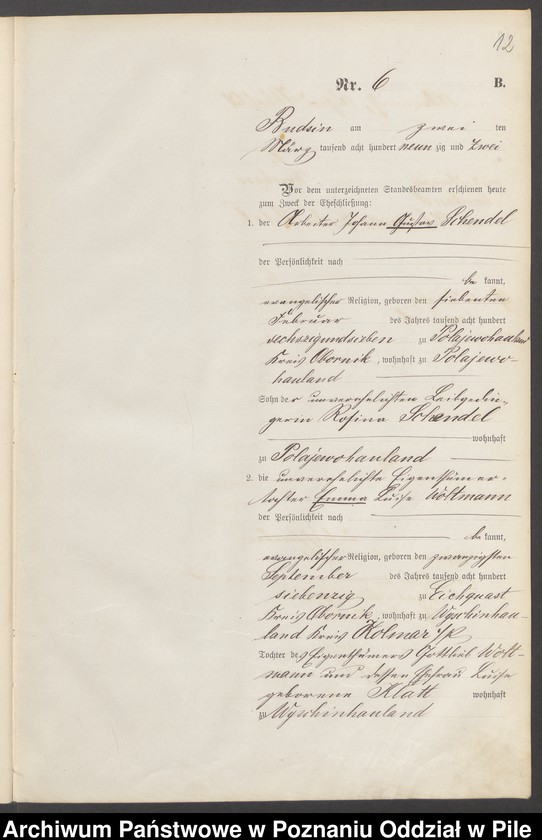 12
Nr. 6 B.
Budsin am zwei ten
März tausend acht hundert neun zig und zwei
Vor dem unterzeichneten Standesbeamten erschienen heute
zum Zweck der Eheschließung:
1. der Arbeiter Johann Gustav Schendel
der Persönlichkeit nach
be kannt,
evangelischer Religion, geboren den siebenten
Februar des Jahres tausend acht hundert
sechszigundsieben zu Polajewohauland
Kreis Obornik, wohnhaft zu Polajewo-
hauland
Sohn der unverehelichten Leibgedin-
gerin Rosina Schendel
wohnhaft
zu Polajewohauland
2. die unverehelichte Eigenthümer-
tochter Emma Luise Woltmann
der Persönlichkeit nach
be kannt,
evangelischer Religion, geboren den zwanzigsten
September des Jahres tausend acht hundert
siebenzig zu Eichquast
Kreis Obornik, wohnhaft zu Wyschinhau-
land Kreis Kolmar i/P
Tochter des Eigenthümers Gottlieb Wolt-
mann und dessen Ehefrau Luise
geborene Klatt wohnhaft
zu Wyschinhauland
Archiwum Państwowe w Poznaniu Oddział w Pile